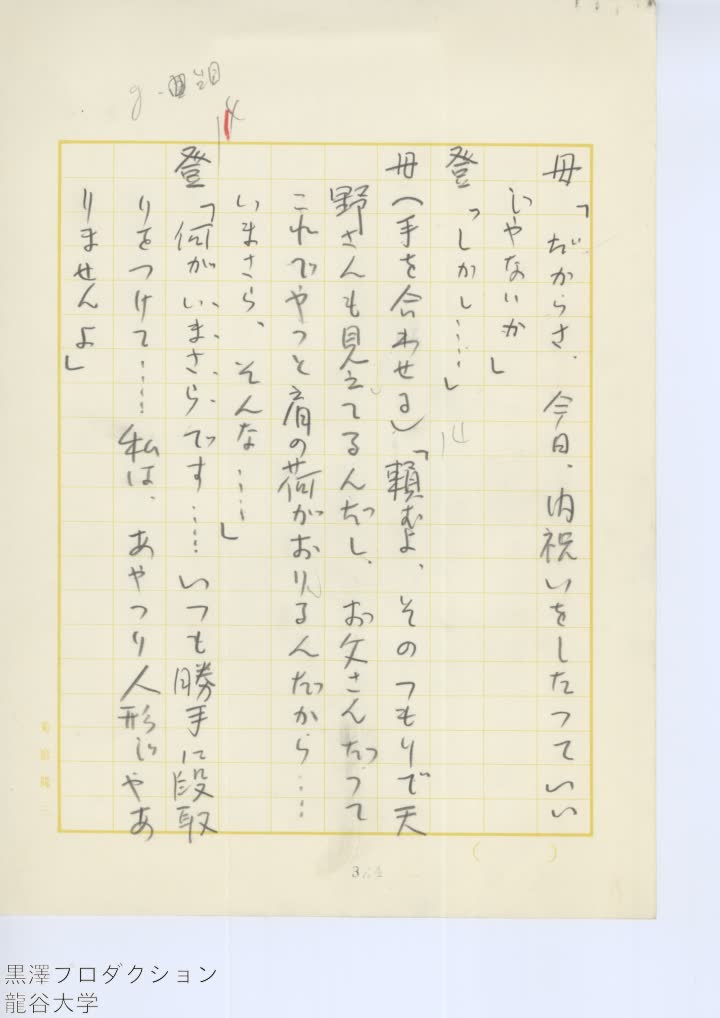 14
母「だからさ、今日、内祝いをしたっていい
じゃないか」
登「しかし……」
母（手を合わせる）「頼むよ、そのつもりで天
野さんも見えてるんだし、お父さんだって
これでやっと肩の荷がおりるんだから……
いまさら、そんな……」
登「何がいまさらです……いつも勝手に段取
りをつけて……私は、あやつり人形じゃあ
りませんよ」
14
黒澤プロダクション
龍谷大学